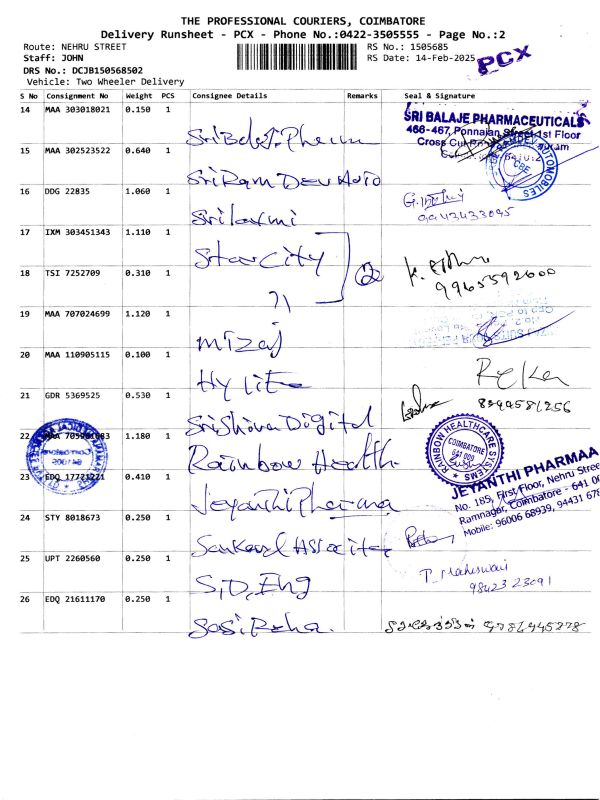 THE PROFESSIONAL COURIERS, COIMBATORE
Delivery Runsheet - PCX - Phone No.:0422-3505555 - Page No.:2
Route: NEHRU STREET
RS No.: 1505685
Staff: JOHN
RS Date: 14-Feb-2025
PCX
DRS No.: DCJB150568502
Vehicle: Two Wheeler Delivery
S No Consignment No Weight PCS Consignee Details Remarks Seal & Signature
14 MAA 303018021 0.150 1
SRI BALAJE PHARMACEUTICALS
466-467, Ponnaian Street 1st Floor
15 MAA 302523522 0.640 1 Sri Ram Dev Auto
AUTOMOBILES
CBE
16 DDG 22835 1.060 1 Sri laxmi
9943433095
17 IXM 303451343 1.110 1 Star City
2
18 TSI 7252709 0.310 1 ″
9965592600
19 MAA 707024699 1.120 1 Mizaj
20 MAA 110905115 0.100 1 Hy Lite
21 GDR 5369525 0.530 1 Sri Shiva Digital
8344581256
22 1.180 1 Rainbow Health
RAINBOW HEALTHCARE SYSTEMS
COIMBATORE
641 009
23 EDQ 17721221 0.410 1 Jeyanthi Pharma
JEYANTHI PHARMAA
No. 185, First Floor, Nehru Stree
Ramnagar, Coimbatore - 641 00
Mobile: 96006 68939, 94431 678
24 STY 8018673 0.250 1
25 UPT 2260560 0.250 1 S.D. Eng
P. Maheswari
98423 23091
26 EDQ 21611170 0.250 1 Sasi Reha.
9786945278